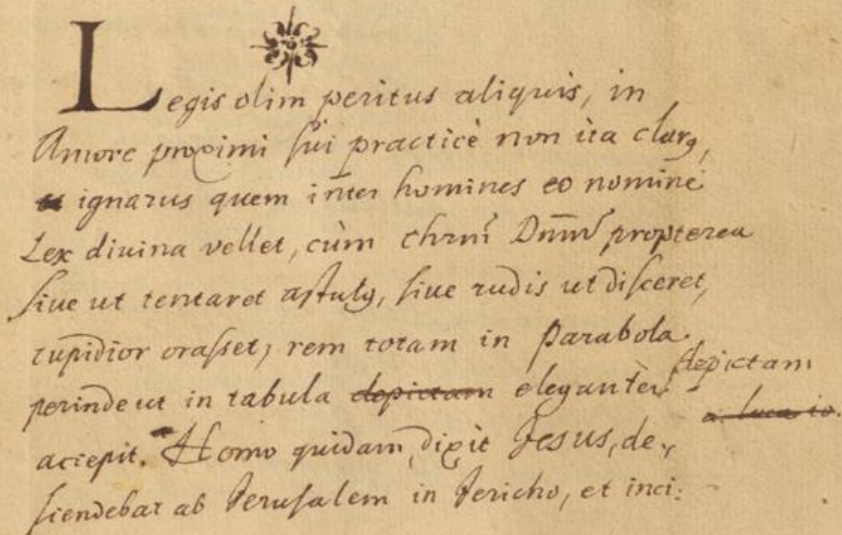 Legis olim peritus aliquis, in
Amore proximi sui practicè non ita clarꝯ,
ignarus quem inter homines eo nomine
Lex diuina vellet, cùm Chrm̄ Dnm̄ propterea
siue ut tentaret astutꝯ, siue rudis ut disceret,
cupidior orasset, rem totam in Parabola
perinde ut in tabula depictam eleganter depictam
a Luca io.
accepit. Homo quidam, dixit Jesus, de,
scendebat ab Jerusalem in Jericho, et inci: